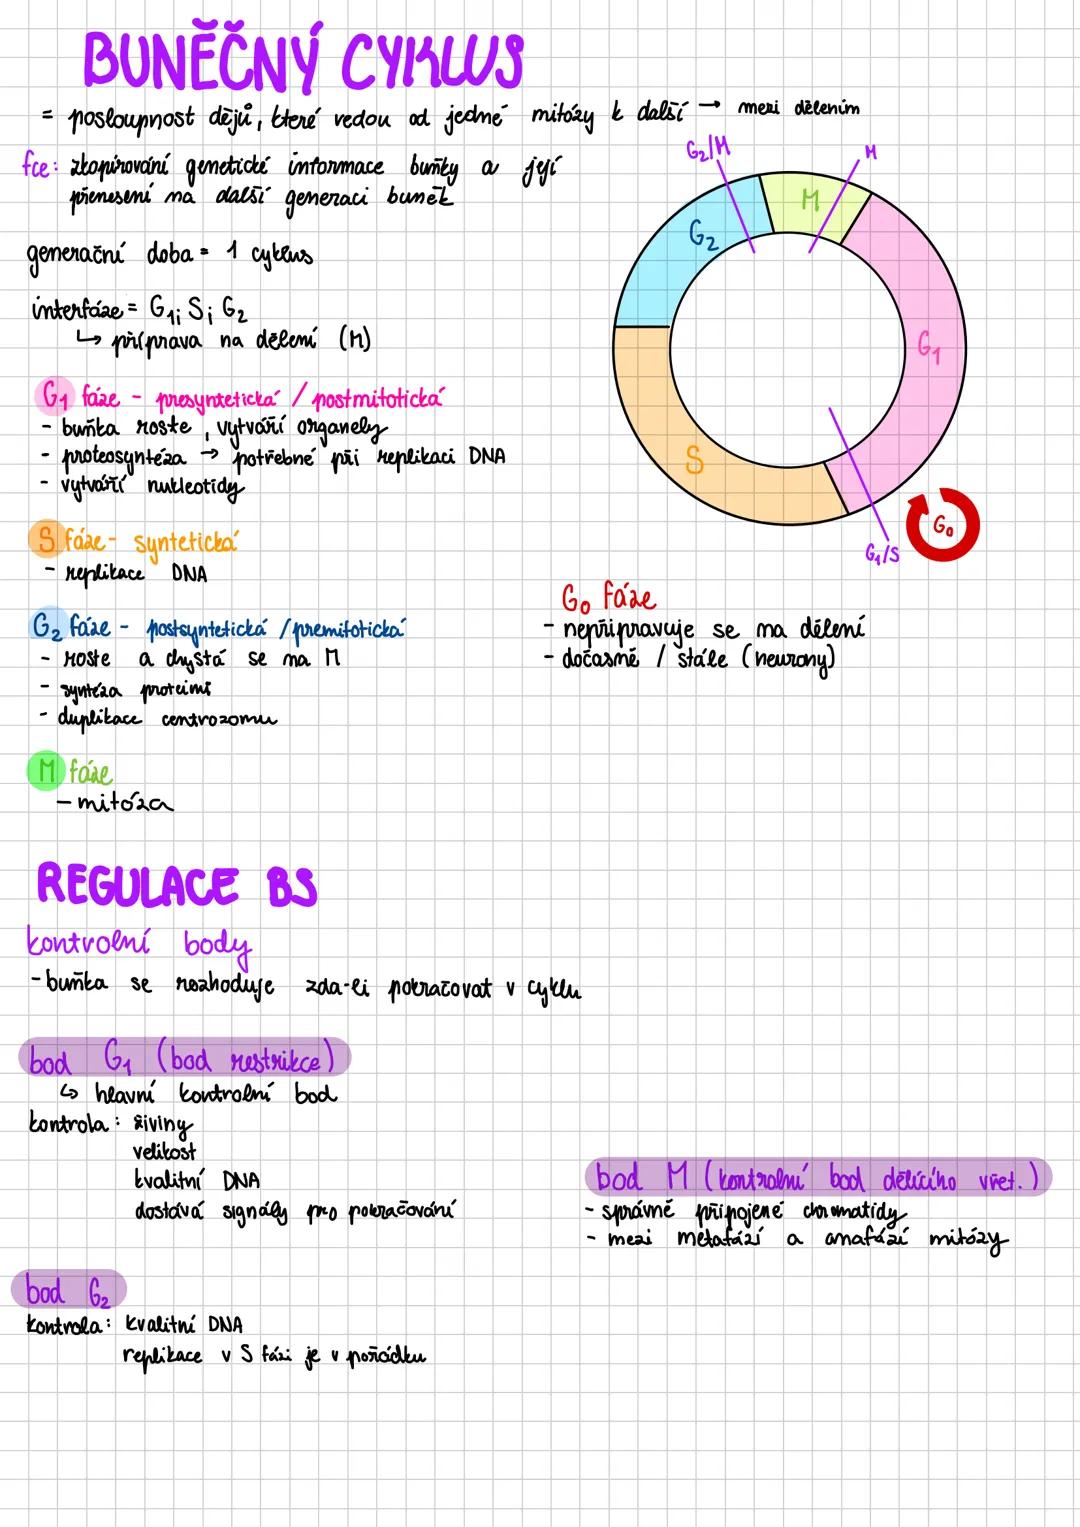 BUNĚČNÝ CYKLUS
= posloupnost dějů, které vedou od jedné mitózy k další → mezi dělením
fce: zkopírování genetické informace buňky a její
přenesení na další generaci buněk
G₂/M
M
M
G₂
G₁
S
G₁/S
G₀
generační doba = 1 cyklus
interfáze = G₁; S; G₂
↳ příprava na dělení (M)
G₁ fáze - presyntetická / postmitotická
- buňka roste, vytváří organely
- proteosyntéza → potřebné při replikaci DNA
- vytváří nukleotidy
S fáze - syntetická
- replikace DNA
G₂ fáze - postsyntetická / premitotická
- roste a chystá se na M
- syntéza proteinů
- duplikace centrozomu
G₀ fáze
- nepřipravuje se na dělení
- dočasně / stále (neurony)
M fáze
- mitóza
REGULACE BS
kontrolní body
- buňka se rozhoduje zda-li pokračovat v cyklu
bod G₁ (bod restrikce)
↳ hlavní kontrolní bod
kontrola: živiny
velikost
kvalitní DNA
dostává signály pro pokračování
bod M (kontrolní bod dělícího vřet.)
- správně připojené chromatidy
- mezi metafází a anafází mitózy
bod G₂
kontrola: kvalitní DNA
replikace v S fázi je v pořádku